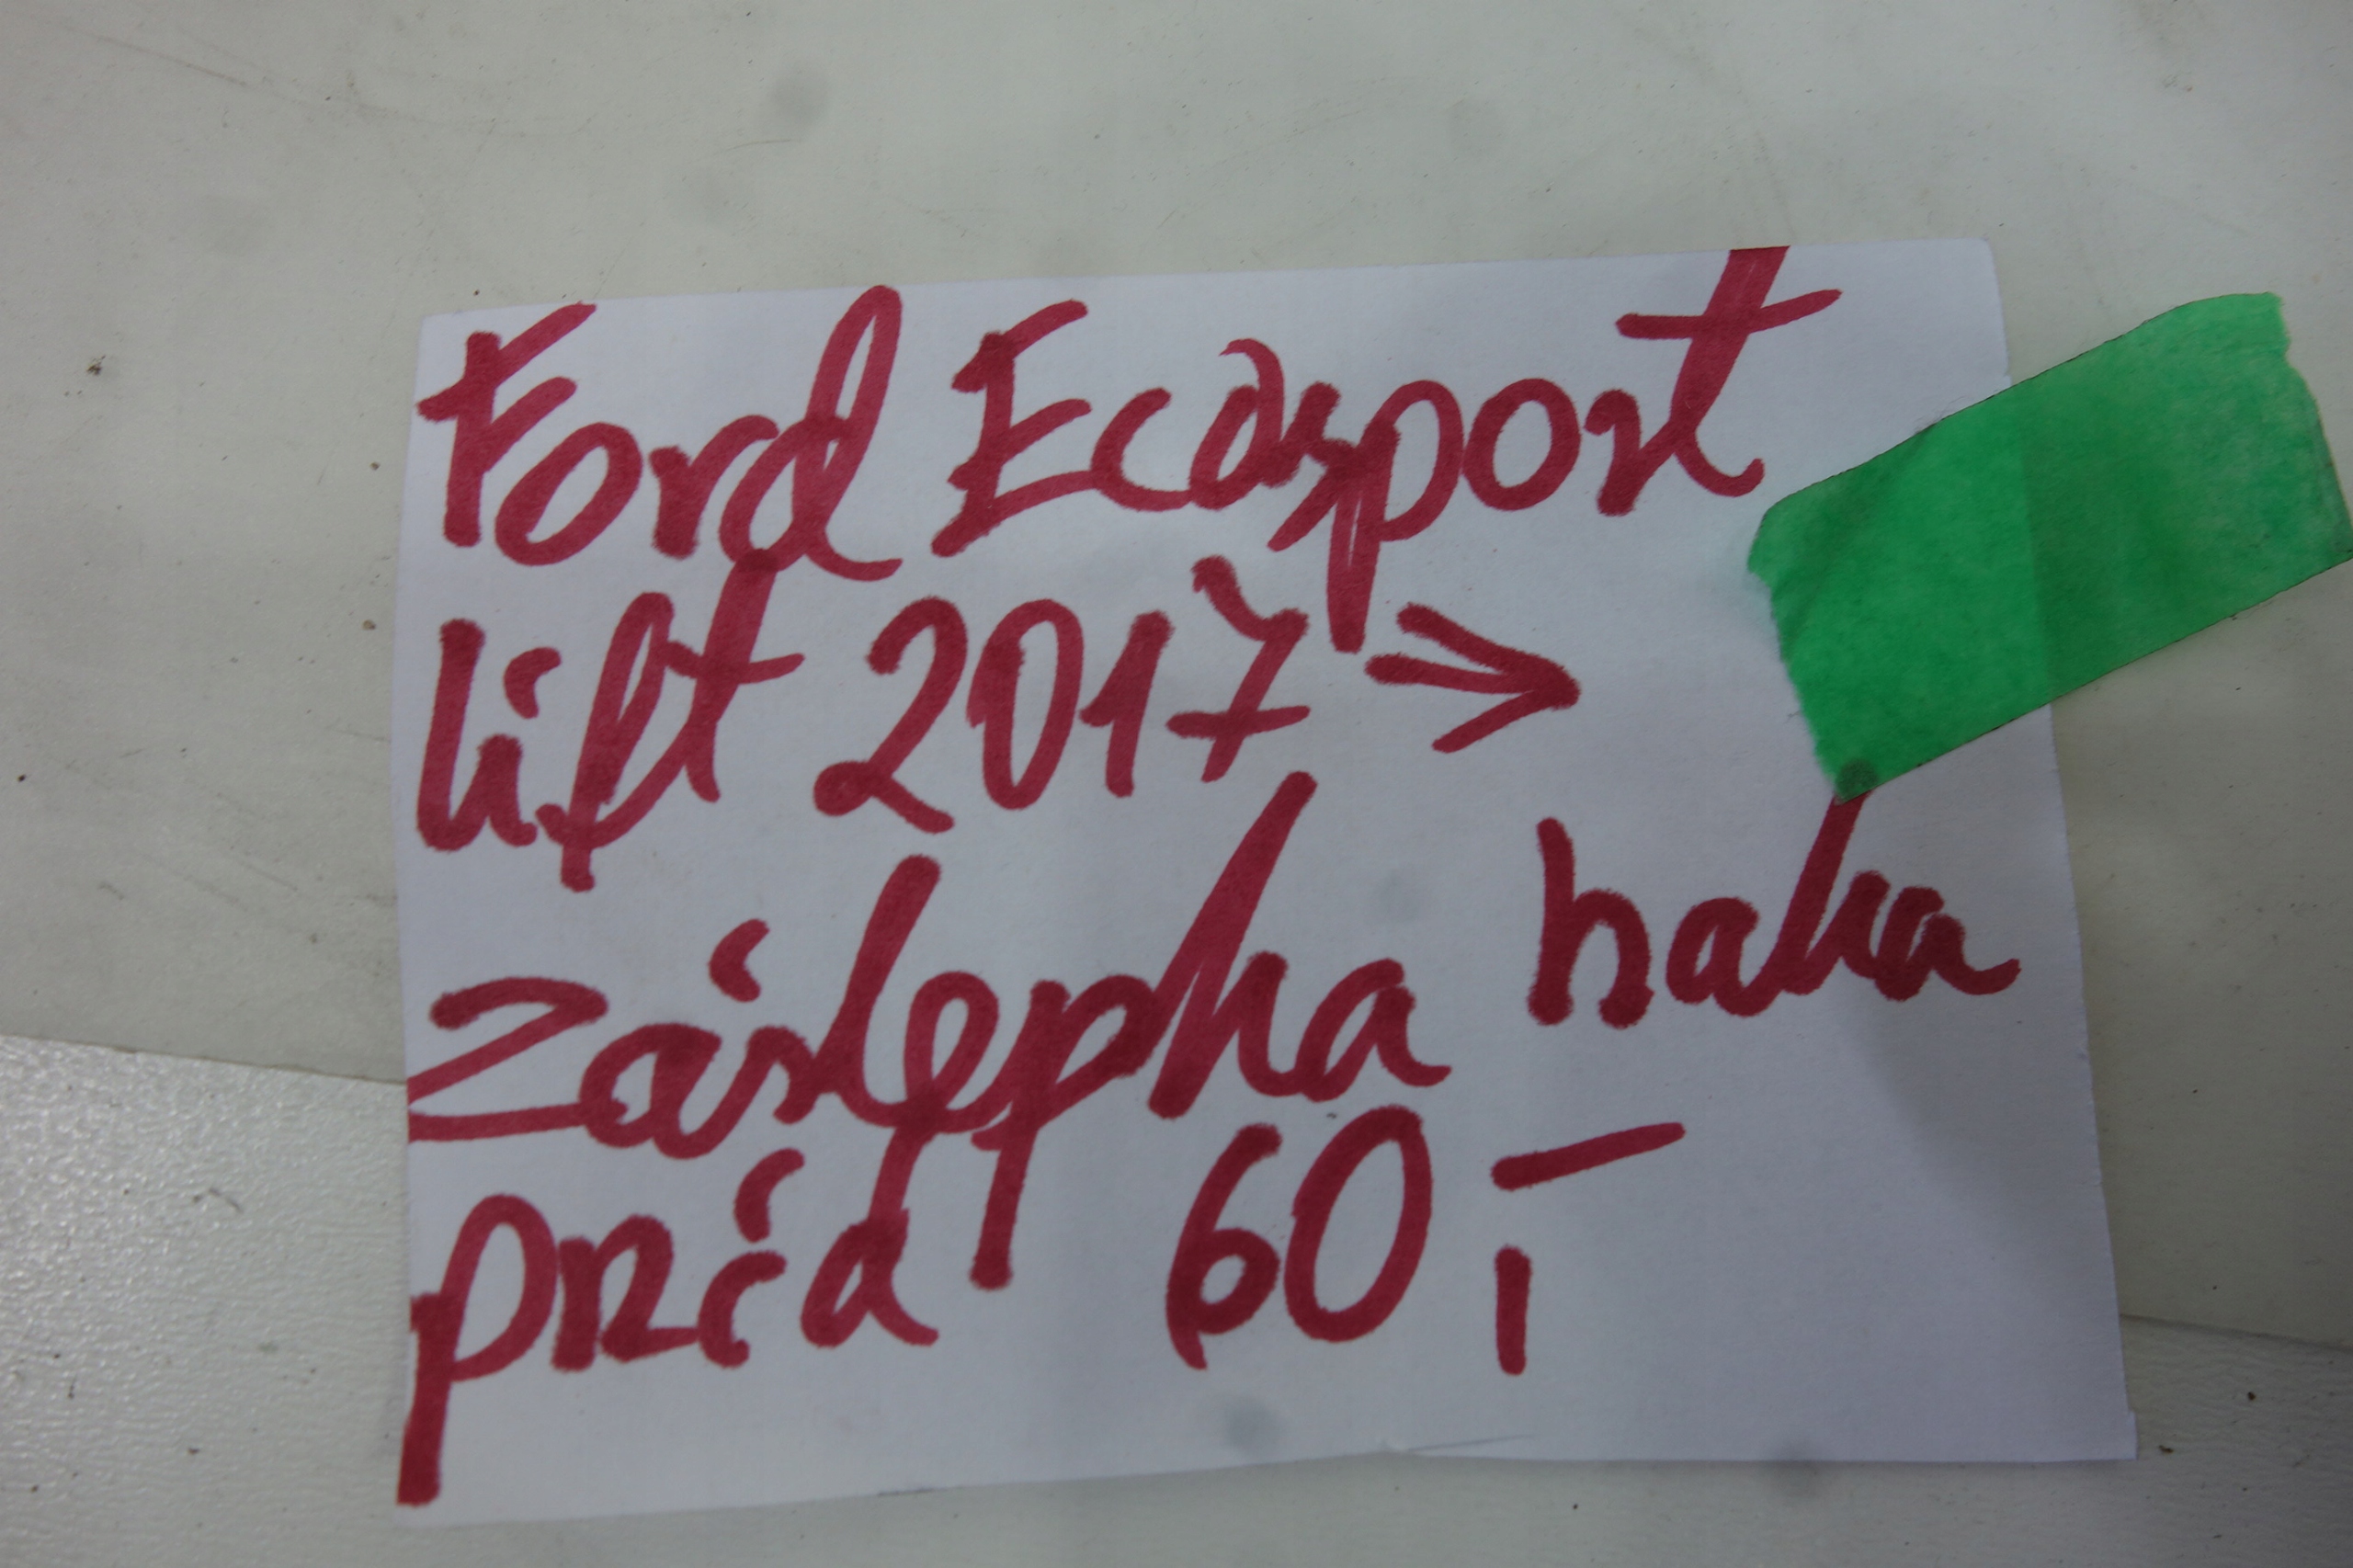 Ford Ecosport
lift 2017 →
záslepka haka
przód 60,-